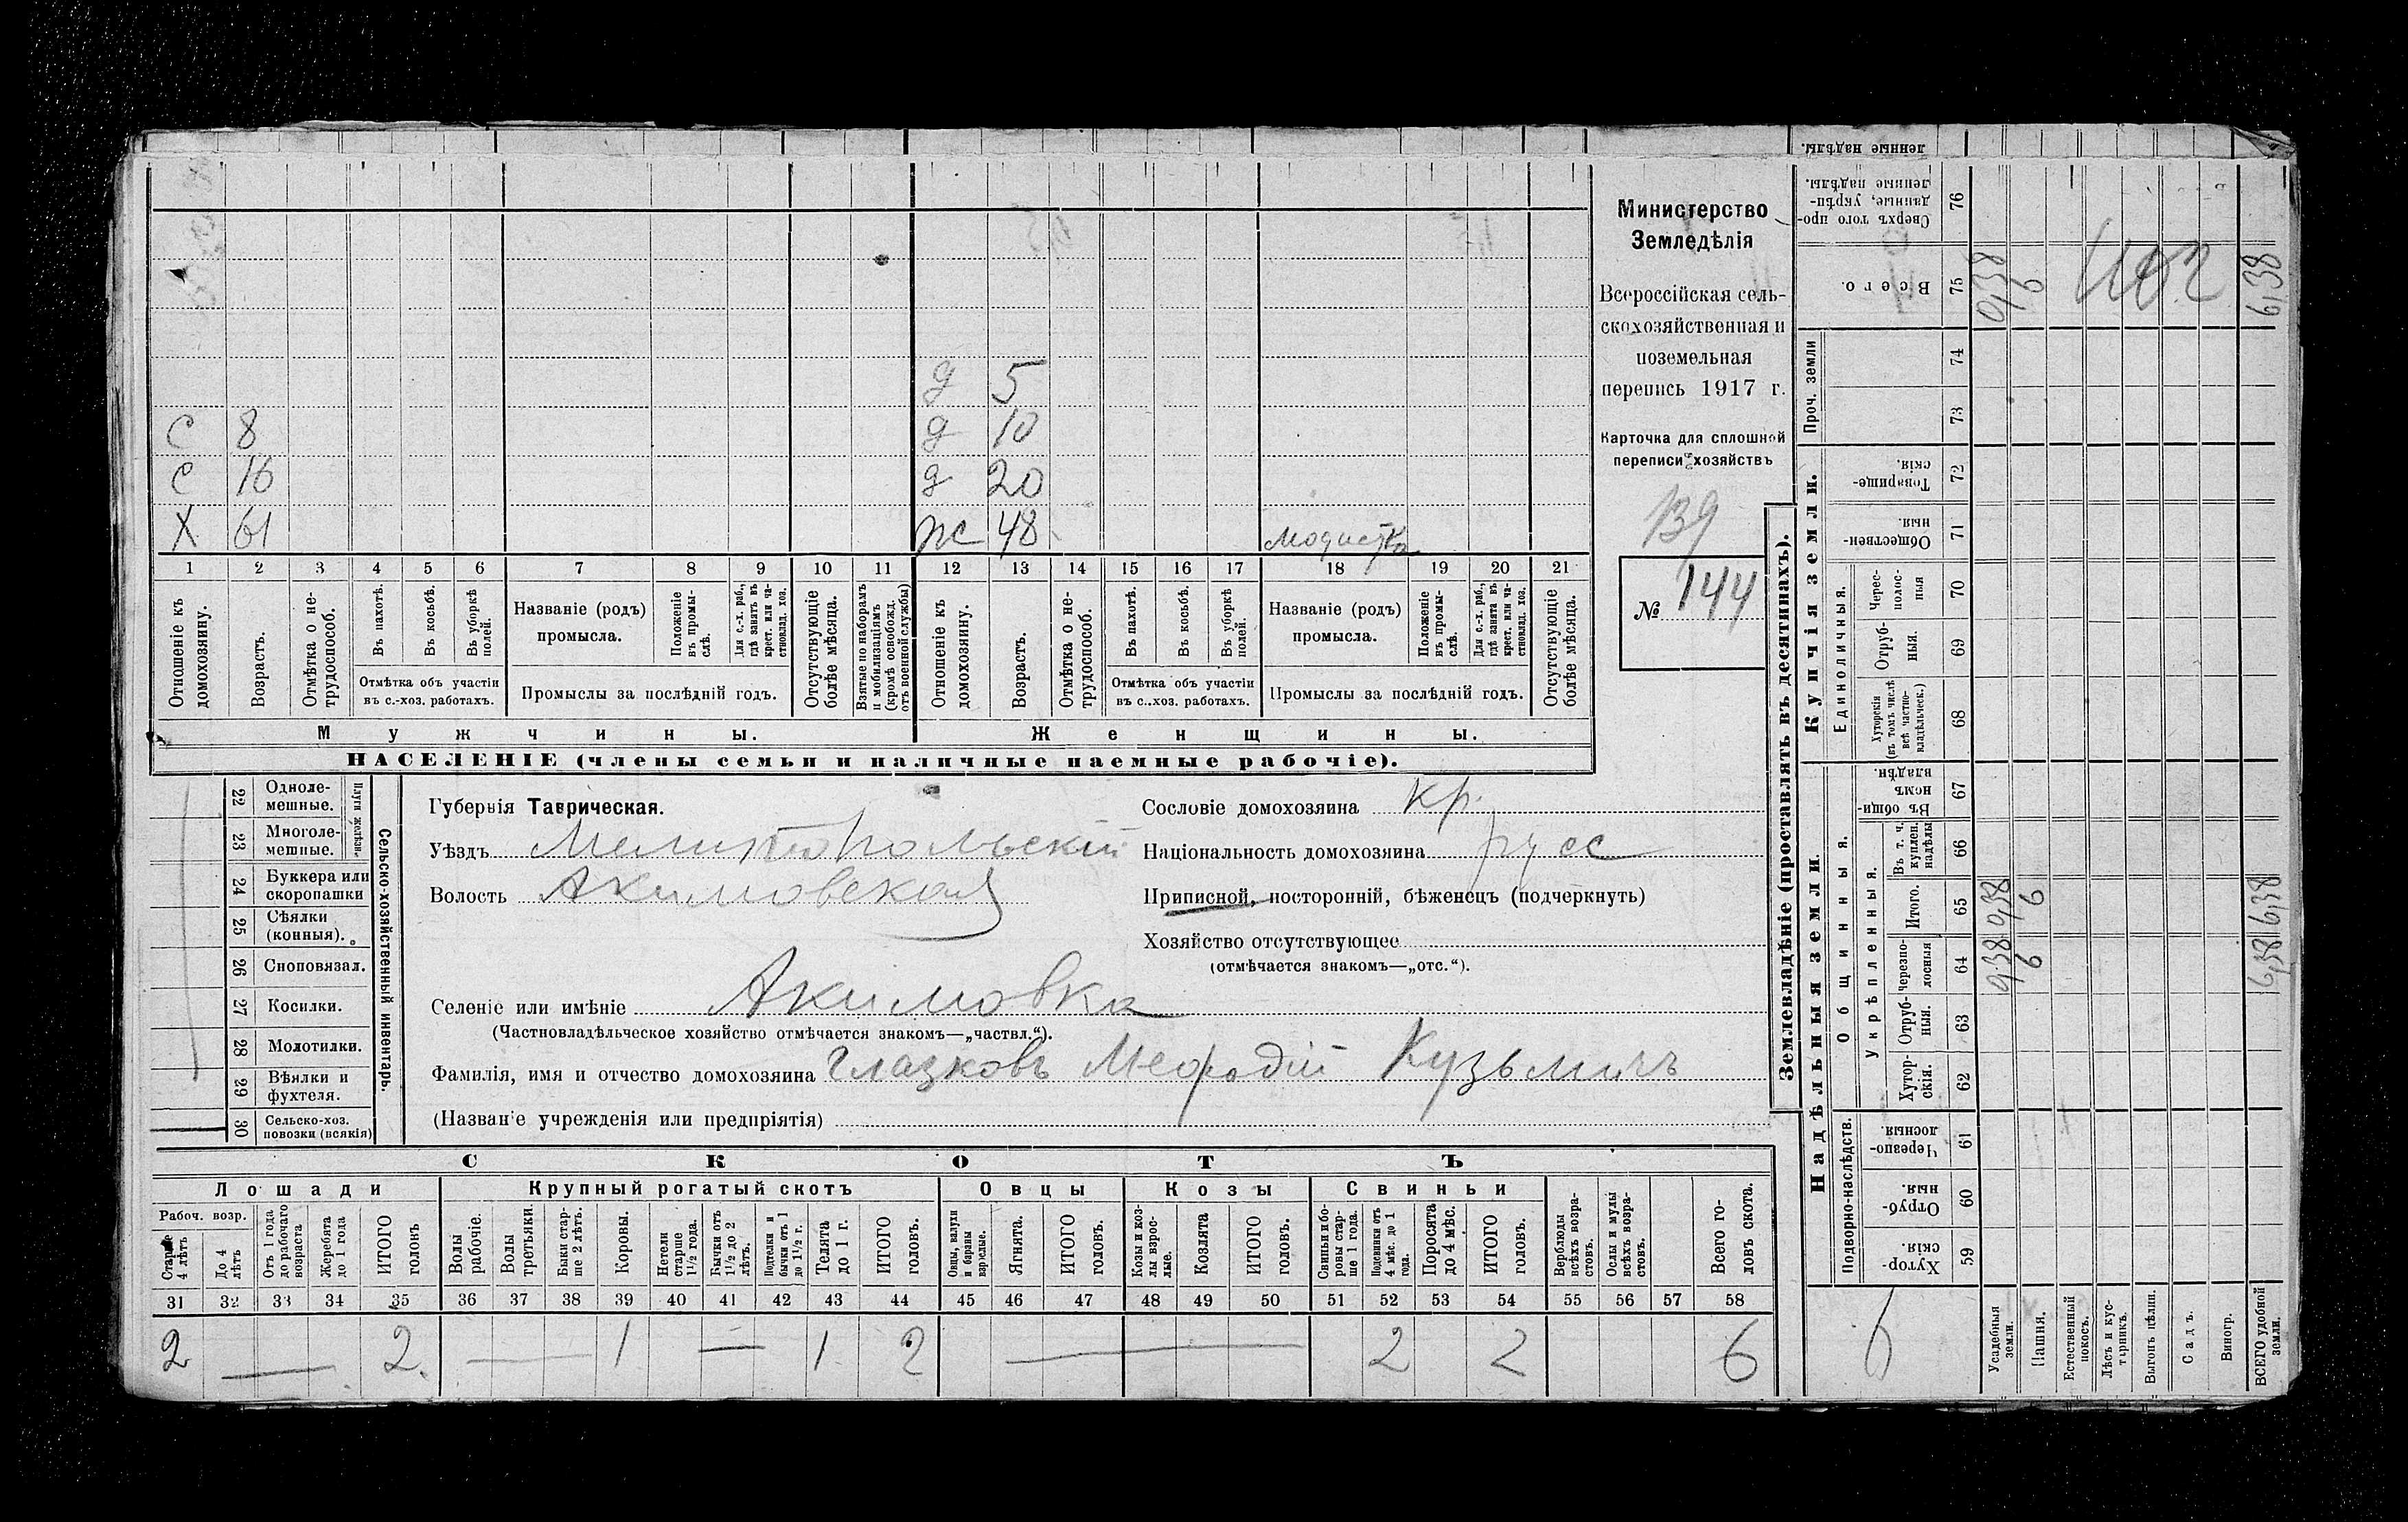 д 5
С 8 д 10
С 16 д 20
Х 61 жс 48 модистка
1 2 3 4 5 6 7 8 9 10 11 12 13 14 15 16 17 18 19 20 21
Отношеніе къ домохозяину.
Возрастъ.
Отмѣтка о не-трудоспособ.
Въ пахотѣ.
Въ косьбѣ.
Въ уборкѣ полей.
Отмѣтка объ участіи
въ с.-хоз. работахъ.
Названіе (родъ)
промысла.
Положеніе въ промы-слѣ.
Для с.-х. раб., гдѣ занятъ въ крест. или ча-стновлад. хоз.
Промыслы за послѣдній годъ.
Отсутствующіе болѣе мѣсяца.
Взятые по наборамъ и мобилизаціямъ (кромѣ освобожд. отъ военной службы)
Отношеніе къ домохозяину.
Возрастъ.
Отмѣтка о не-трудоспособ.
Въ пахотѣ.
Въ косьбѣ.
Въ уборкѣ полей.
Отмѣтка объ участіи
въ с.-хоз. работахъ.
Названіе (родъ)
промысла.
Положеніе въ промы-слѣ.
Для с.-х. раб., гдѣ занята въ крест. или ча-стновлад. хоз.
Промыслы за послѣдній годъ.
Отсутствующіе болѣе мѣсяца.
Мужчины. Женщины.
НАСЕЛЕНІЕ (члены семьи и наличные наемные рабочіе).
Министерство
Земледѣлія
Всероссійская сель-
скохозяйственная и
поземельная
перепись 1917 г.
Карточка для сплошной
переписи хозяйствъ
139
№ 144
22 Одноле-мешные.
23 Многоле-мешные.
Плуги желѣзн.
24 Буккера или скоропашки
25 Сѣялки (конныя).
26 Сноповязал.
27 Косилки.
28 Молотилки.
29 Вѣялки и фухтеля.
30 Сельско-хоз. повозки (всякія)
Сельско-хозяйственный инвентарь.
Губернія Таврическая.
Уѣздъ Мелитопольскій
Волость Акимовская
Селеніе или имѣніе Акимовка
(Частновладѣльческое хозяйство отмѣчается знакомъ—„частвл.“).
Фамилія, имя и отчество домохозяина Глазковъ Мефодій Кузьмичъ
(Названіе учрежденія или предпріятія)
Сословіе домохозяина кр.
Національность домохозяина русс
Приписной, посторонній, бѣженецъ (подчеркнуть)
Хозяйство отсутствующее
(отмѣчается знакомъ—„отс.“).
СКОТЪ
Лошади Крупный рогатый скотъ Овцы Козы Свиньи
Рабоч. возр.
Старше 4 лѣтъ
До 4 лѣтъ
Отъ 1 года до рабочаго возраста
Жеребята до 1 года
ИТОГО головъ
Волы рабочіе.
Волы третьяки.
Быки стар-ше 2 лѣтъ.
Коровы.
Нетели старше 1½ года.
Бычки отъ 1½ до 2 лѣтъ.
Подтелки и бычки отъ 1 до 1½ г.
Телята до 1 г.
ИТОГО головъ.
Овцы, валухи и бараны взрослые.
Ягнята.
ИТОГО головъ.
Козы и коз-лы взрос-лые.
Козлята
ИТОГО головъ.
Свиньи и бо-ровы стар-ше 1 года.
Подсвинки отъ 4 мѣс. до 1 года.
Поросята до 4 мѣс.
ИТОГО головъ.
Верблюды всѣхъ возра-стовъ.
Ослы и мулы всѣхъ возра-стовъ.
Всего го-ловъ скота.
31 32 33 34 35 36 37 38 39 40 41 42 43 44 45 46 47 48 49 50 51 52 53 54 55 56 57 58
2 — 2. — 1 — 1 2 — 2 2 6
Землевладѣніе (проставлять въ десятинахъ).
Надѣльныя земли. Купчія земли. Проч. земли
Подворно-наслѣдств.
Общинныя.
Укрѣпленныя.
Единоличныя.
Хутор-скія. 59
Отруб-ныя. 60
Черезпо-лосныя. 61
Хутор-скія. 62
Отруб-ныя. 63
черезпо-лосныя 64
Итого. 65
Въ т. ч. куплен. надѣлы 66
Въ общи-номъ владѣн. 67
Хуторскія (въ томъ числѣ всѣ частно-владѣльческ.) 68
Отруб-ныя. 69
Черес-полос-ныя 70
Обществен-ныя. 71
Товарище-скія. 72
73
74
Всего. 75
Сверхъ того про-данные, укрѣп-ленные надѣлы. 76
ленные надѣлы.
Усадебныя земли. 0,38 0,38 0,38
Пашня. 6 6 6
Естественный покосъ.
Лѣсъ и кус-тарникъ.
Выгонъ цѣлин.
Садъ.
Виногр.
ВСЕГО удобной земли. 6,38 6,38 6,38
6